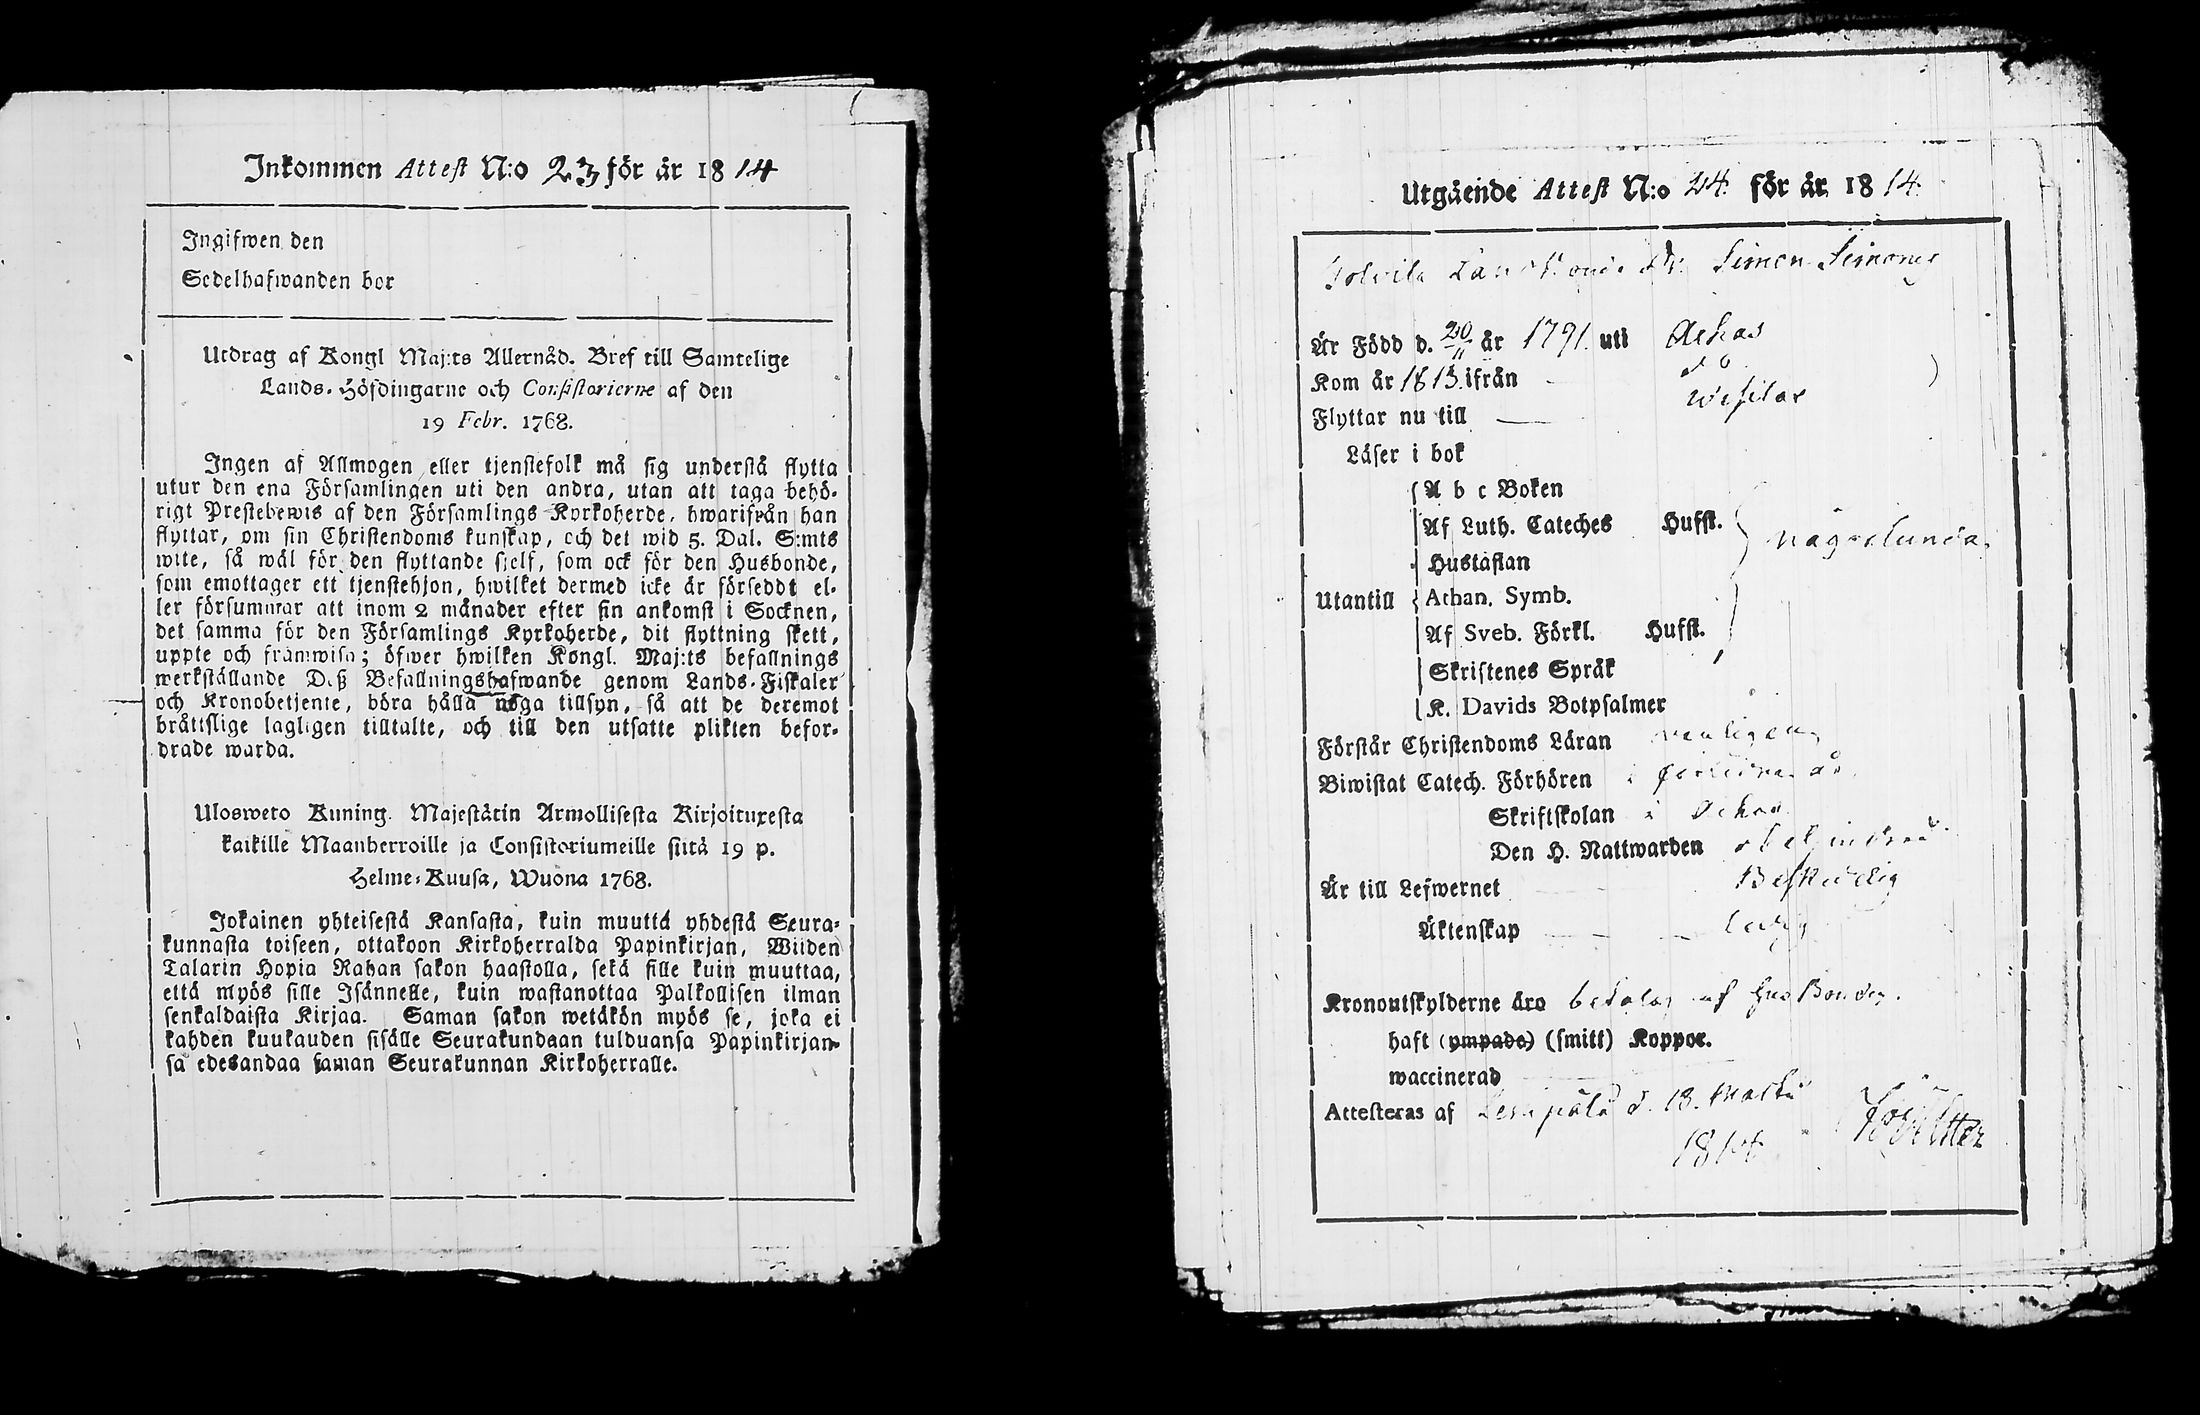 Inkommen Attest N:o 23 för år 1814
Ingifwen den
Sedelhafwanden bor
Utdrag af Kongl Maj:ts Allernåd. Bref till Samtelige
Lands-Höfdingarne och Consistorierne af den
19 Febr. 1768.
Ingen af Allmogen eller tjenstefolk må sig understå flytta
utur den ena Församlingen uti den andra, utan att taga behö-
rigt Prestebewis af den Församlings Kyrkoherde, hwarifrån han
flyttar, om sin Christendoms kunskap, och det wid 5. Dal. S:mts
wite, så wäl för den flyttande sjelf, som ock för den Husbonde,
som emottager ett tjenstehjon, hwilket dermed icke är försedt el-
ler försummar att inom 2 månader efter sin ankomst i Socknen,
det samma för den Församlings Kyrkoherde, dit flyttning skett,
uppte och framwisa; öfwer hwilken Kongl. Maj:ts befallnings
werkställande Deß Befallningshafwande genom Lands-Fiskaler
och Kronobetjente, böra hålla noga tillsyn, så att de deremot
bråtislige lagligen tilltalte, och till den utsatte plikten befor-
drade warda.
Ulosweto Kuning. Majestätin Armollisesta Kirjoituxesta
kaikille Maanherroille ja Consistoriumeille siitä 19 p.
Helme-Kuusa, Wuona 1768.
Jokainen yhteisestä Kansasta, kuin muuttä yhdestä Seura-
kunnasta toiseen, ottakoon Kirkoherralda Papinkirjan, Wiiden
Talarin Hopia Rahan sakon haastolla, sekä sille kuin muuttaa,
että myös sille Isännelle, kuin wastanottaa Palkollisen ilman
senkaldaista Kirjaa. Saman sakon wetäkön myös se, joka ei
kahden kuukauden sisälle Seurakundaan tulduansa Papinkirjan-
sa edesandaa saman Seurakunnan Kirkoherralle.
Utgående Attest N:o 24. för år 1814.
Simon Simons
Är Född d. 20/11 år 1791. uti Ackas
Kom år 1813. ifrån do
Flyttar nu till Wesilax
Läser i bok
A b c Boken
Af Luth. Cateches Hufst.
Hustaflan
någorlunda.
Utantill Athan. Symb.
Af Sveb. Förkl. Hufst.
Skriftenes Språk
K. Davids Botpsalmer
Förstår Christendoms Läran
Biwistat Catech. Förhören i år.
Skriftskolan i Ackas
Den H. Nattwarden obehindrad
Är till Lefwernet Beskedelig
Äktenskap ledig
Kronoutskylderne äro betalas af Husbonden.
haft (ympade) (smitt) Koppor.
waccinerad
Attesteras af Lempälä d. 18. Martii
1814